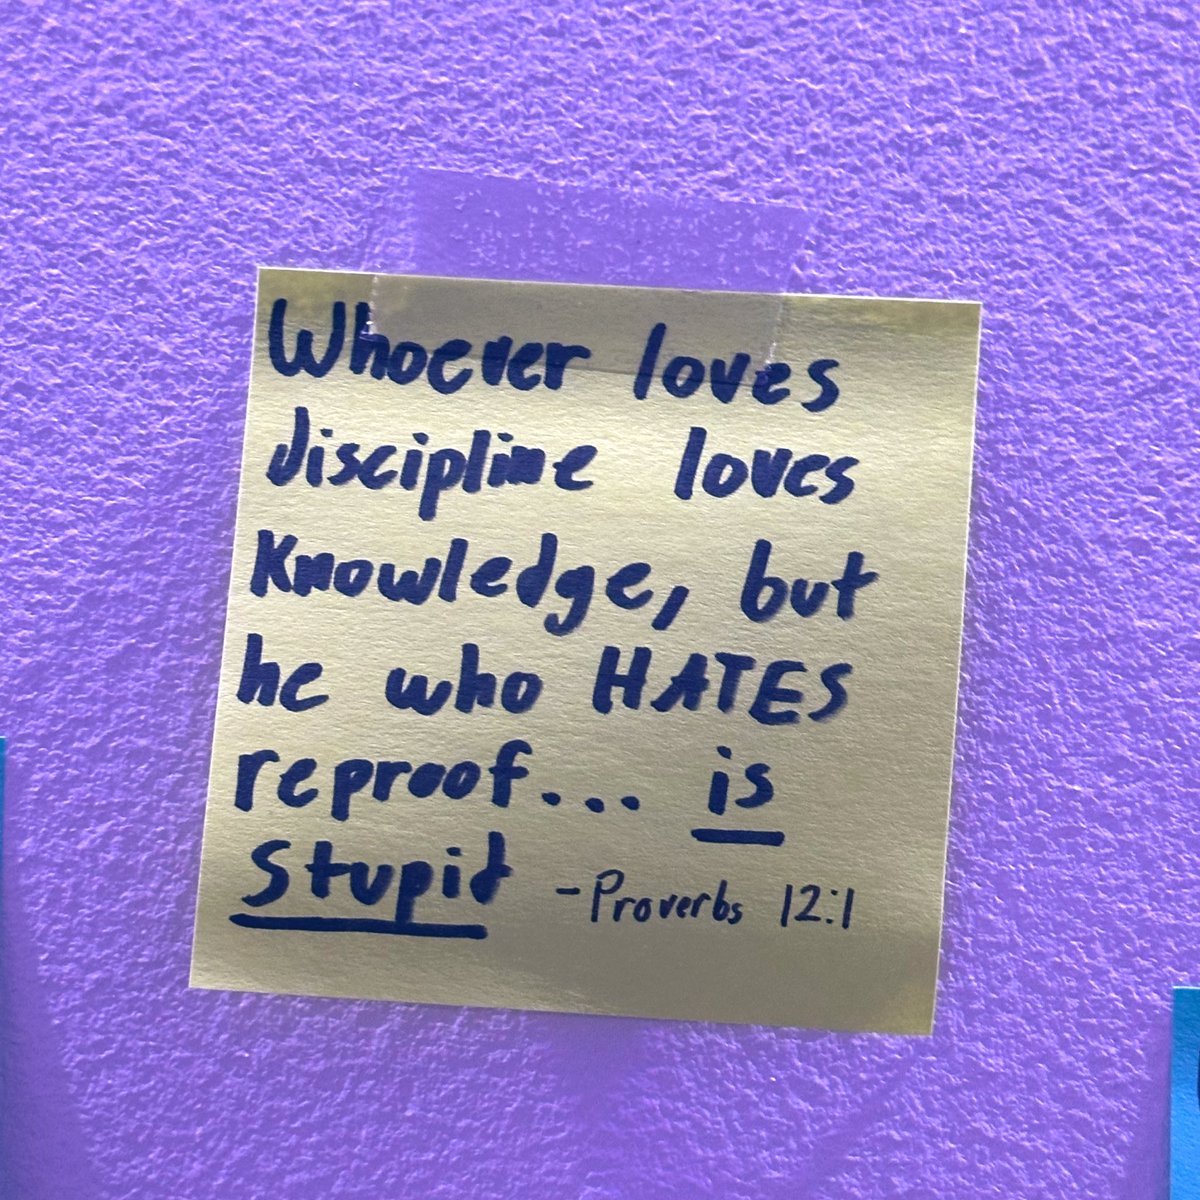 Whoever loves
discipline loves
Knowledge, but
he who HATES
reproof... is
Stupid -Proverbs 12:1